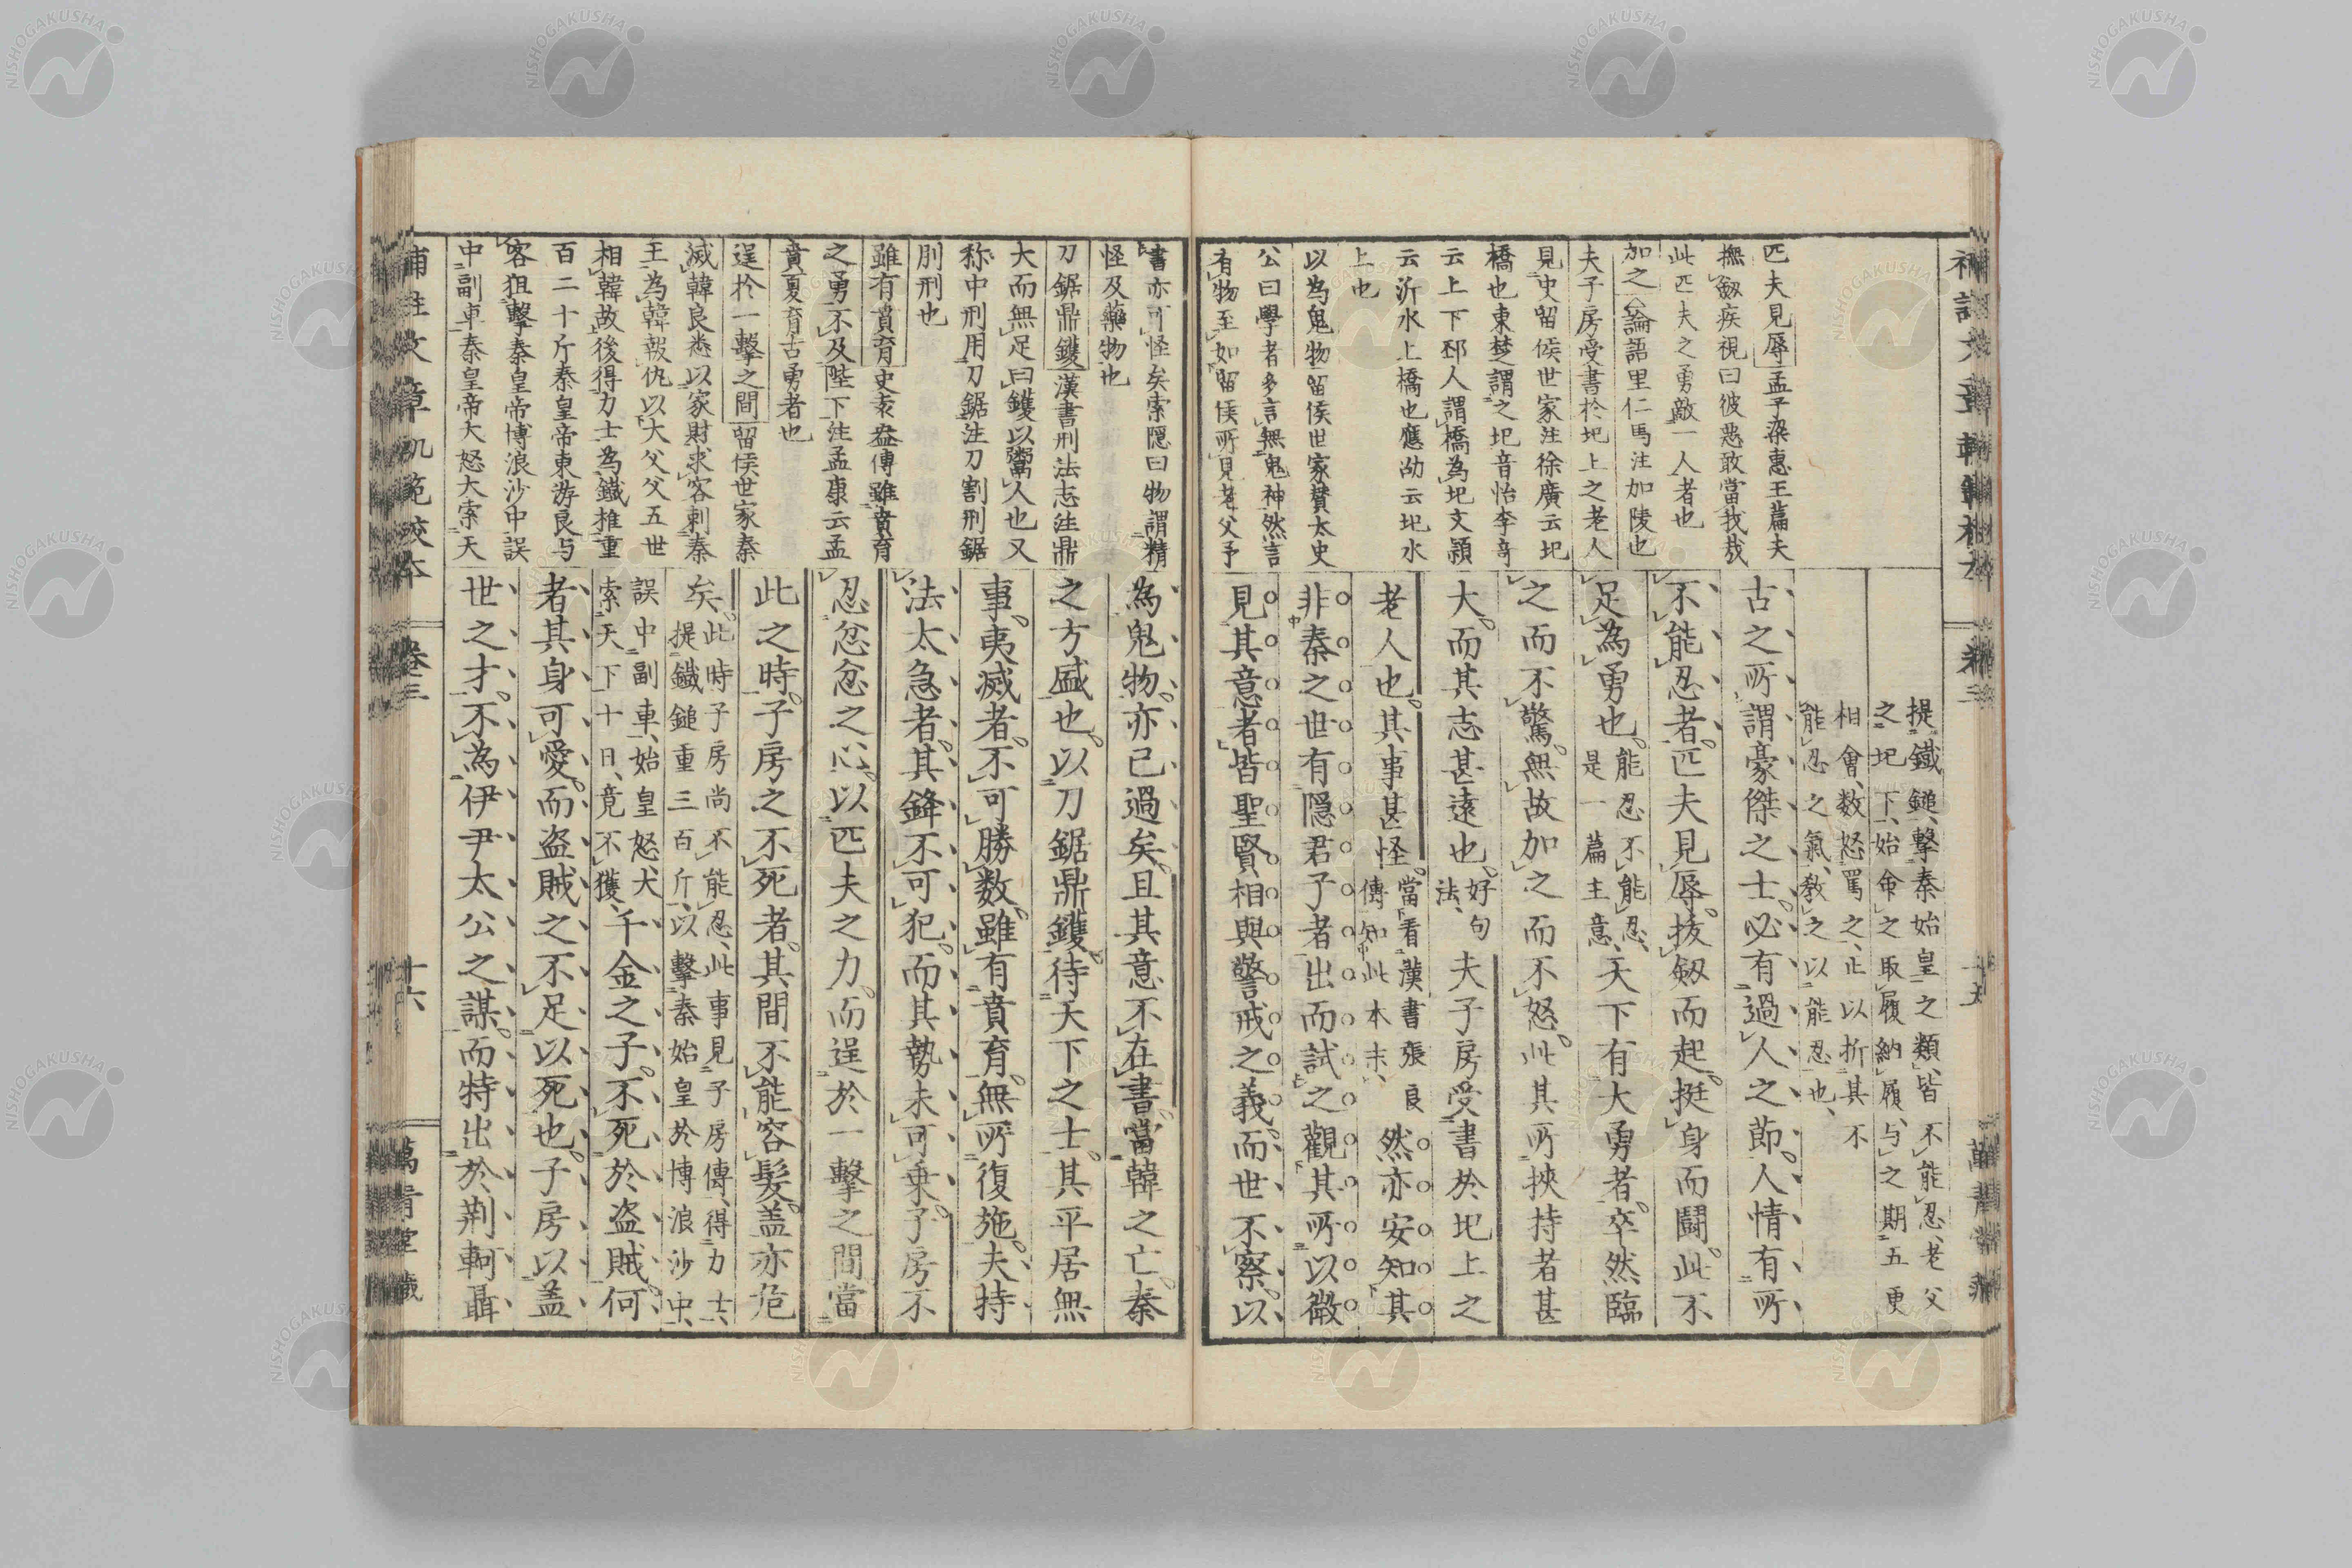 匹夫見辱孟子梁惠王篇夫
撫劔疾視曰彼惡敢當我哉
此匹夫之勇敵一人者也
加之論語里仁馬注加陵也
夫子房受書於圯上之老人
見史留侯世家注徐廣云圯
橋也東楚謂之圯音怡李奇
云上下邳人謂橋為圯文頴
云沂水上橋也應劭云圯水
上也
以為鬼物留侯世家賛太史
公曰學者多言無鬼神然言
有物至如留侯所見老父予
提鐵鎚擊秦始皇之類皆不能忍老父
之圯下始命之取履納履与之期五更
相會数怒罵之止以折其不
能忍之氣教之以能忍也
古之所謂豪傑之士必有過人之節人情有所
不能忍者匹夫見辱拔劔而起挺身而闘此不
足為勇也
能忍不能忍
是一篇主意
天下有大勇者卒然臨
之而不驚無故加之而不怒此其所挾持者甚
大而其志甚遠也
好句
法
夫子房受書於圯上之
老人也其事甚怪
當看漢書張良
傳知此本末
然亦安知其
非秦之世有隠君子者出而試之觀其所以微
見其意者皆聖賢相與警戒之義而世不察以
書亦可怪矣索隠曰物謂精
怪及藥物也
刀鋸鼎鑊漢書刑法志注鼎
大而無足曰鑊以鬻人也又
称中刑用刀鋸注刀割刑鋸
刖刑也
雖有賁育史袁盎傳雖賁育
之勇不及陛下注孟康云孟
賁夏育古勇者也
逞於一擊之間留侯世家秦
滅韓良悉以家財求客刺秦
王為韓報仇以大父父五世
相韓故後得力士為鐵椎重
百二十斤秦皇帝東游良与
客狙擊秦皇帝博浪沙中誤
中副車秦皇帝大怒大索天
為鬼物亦已過矣且其意不在書當韓之亡秦
之方盛也以刀鋸鼎鑊待天下之士其平居無
事夷滅者不可勝数雖有賁育無所復施夫持
法太急者其鋒不可犯而其勢未可乗子房不
忍忿忿之心以匹夫之力而逞於一擊之間當
此之時子房之不死者其間不能容髪盖亦危
矣
此時子房尚不能忍此事見子房傳得力士
提鐵鎚重三百斤以擊秦始皇於博浪沙中
誤中副車始皇怒大
索天下十日竟不獲
千金之子不死於盗賊何
者其身可愛而盗賊之不足以死也子房以盖
世之才不為伊尹太公之謀而特出於荆軻聶
卷三
十六
NISHOGAKUSHA